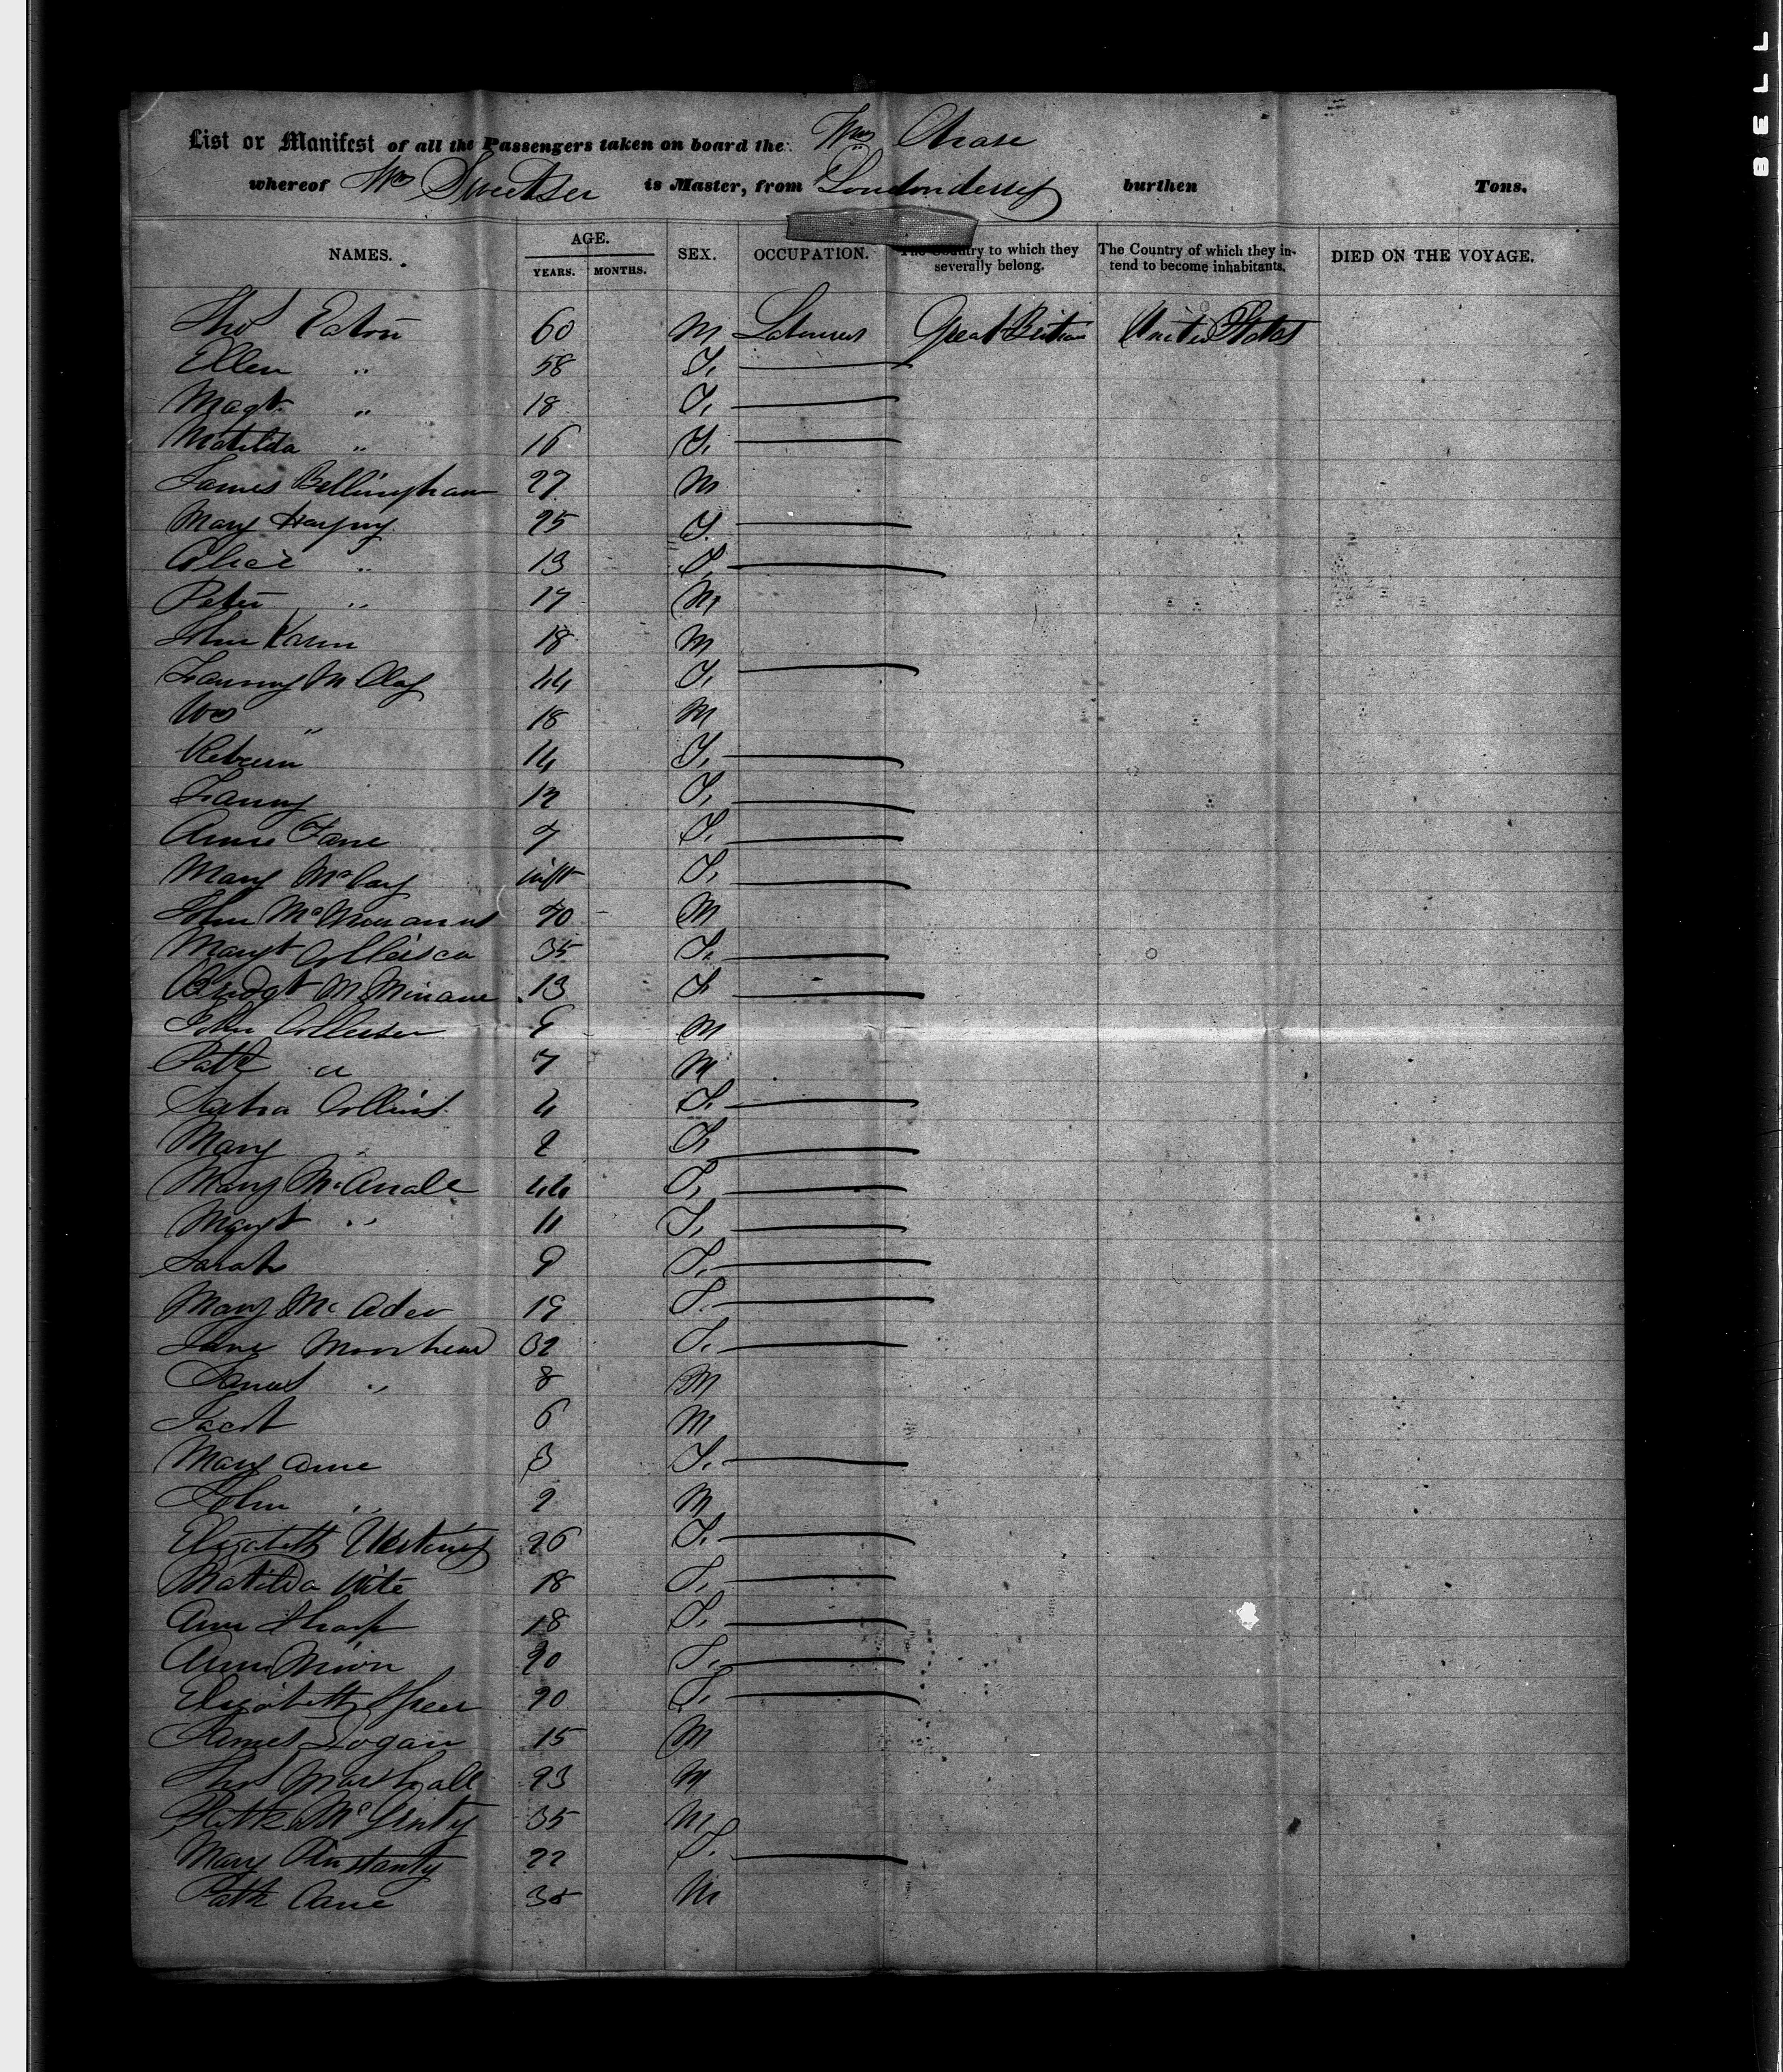 BELL
List or Manifest of all the Passengers taken on board the Wm Chase
whereof Wm Sweetser is Master, from Londonderry burthen Tons.
NAMES. AGE. YEARS. MONTHS. SEX. OCCUPATION. The Country to which they severally belong. The Country of which they intend to become inhabitants. DIED ON THE VOYAGE.
Thos Eaton 60 M Labourer Great Britain United States
Ellen " 58 F.
Magt. " 18 F.
Matilda " 16 F.
James Bellingham 27 M
Mary 25 F.
Alice " 13 F.
Peter " 17 M
John 18 M
Fanny McClay 44 F.
Wm " 18 M
14 F.
Fanny 12 F.
Anne Jane 7 F.
Mary McCay inft F.
John 40 M
Margt 35 F.
Bridgt McMinane 13 F
John 9 M
Patk " 7 M
Collins 4 F.
Mary 2 F.
Mary McAnale 44 F.
Margt " 11 F.
Sarah 9 F.
Mary McAdoo 19 F.
Jane Moorhead 32 F.
" 8 M
Jacob 6 M
Mary Anne 3 F.
John " 2 M
Elizabeth 26 F.
Matilda Wite 18 F.
Ann Sharp 18 F.
Ann 20 F.
Elizabeth Speer 20 F.
James Logan 15 M
Thos Marshall 23 M
Patk McGinty 35 M
Mary 22 F.
Patk Cane 35 M